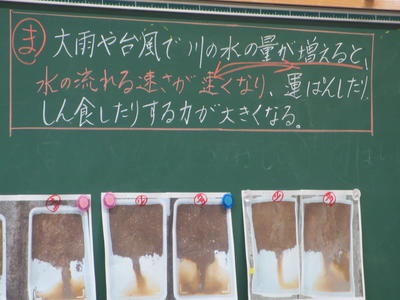 ま 大雨や台風で川の水の量が増えると、
水の流れる速さが速くなり、運ぱんしたり、
しん食したりする力が大きくなる。
少 多 少 多